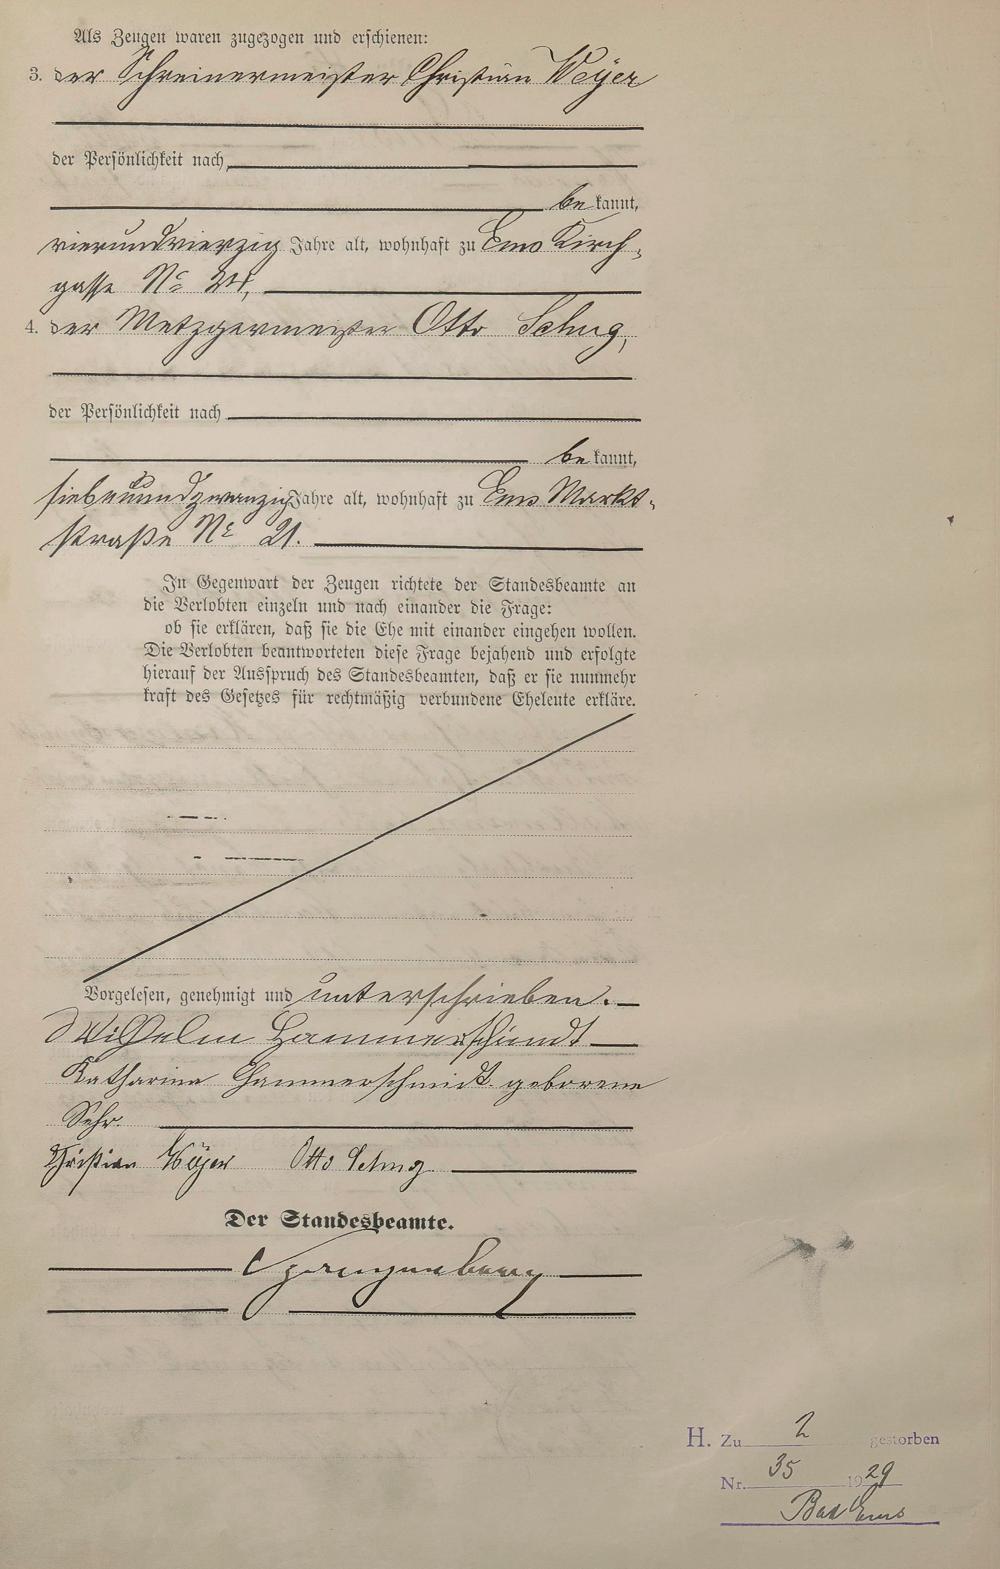 Als Zeugen waren zugezogen und erschienen:
3. der Schreinermeister Christian Weÿer
der Persönlichkeit nach,
be kannt,
vierundvierzig Jahre alt, wohnhaft zu Ems Kirch-
gasse No 24,
4. der Metzgermeister Otto Schug,
der Persönlichkeit nach
be kannt,
siebenundzwanzig Jahre alt, wohnhaft zu Ems Markt-
straße No 21.
In Gegenwart der Zeugen richtete der Standesbeamte an
die Verlobten einzeln und nach einander die Frage:
ob sie erklären, daß sie die Ehe mit einander eingehen wollen.
Die Verlobten beantworteten diese Frage bejahend und erfolgte
hierauf der Ausspruch des Standesbeamten, daß er sie nunmehr
kraft des Gesetzes für rechtmäßig verbundene Eheleute erkläre.
Vorgelesen, genehmigt und unterschrieben.
Wilhelm Hammerschmidt
Katharina Hammerschmidt geborene
Sehr.
Christian Weÿer Otto Schug
Der Standesbeamte.
H. Zu 2 gestorben
Nr. 35 1929
Bad Ems